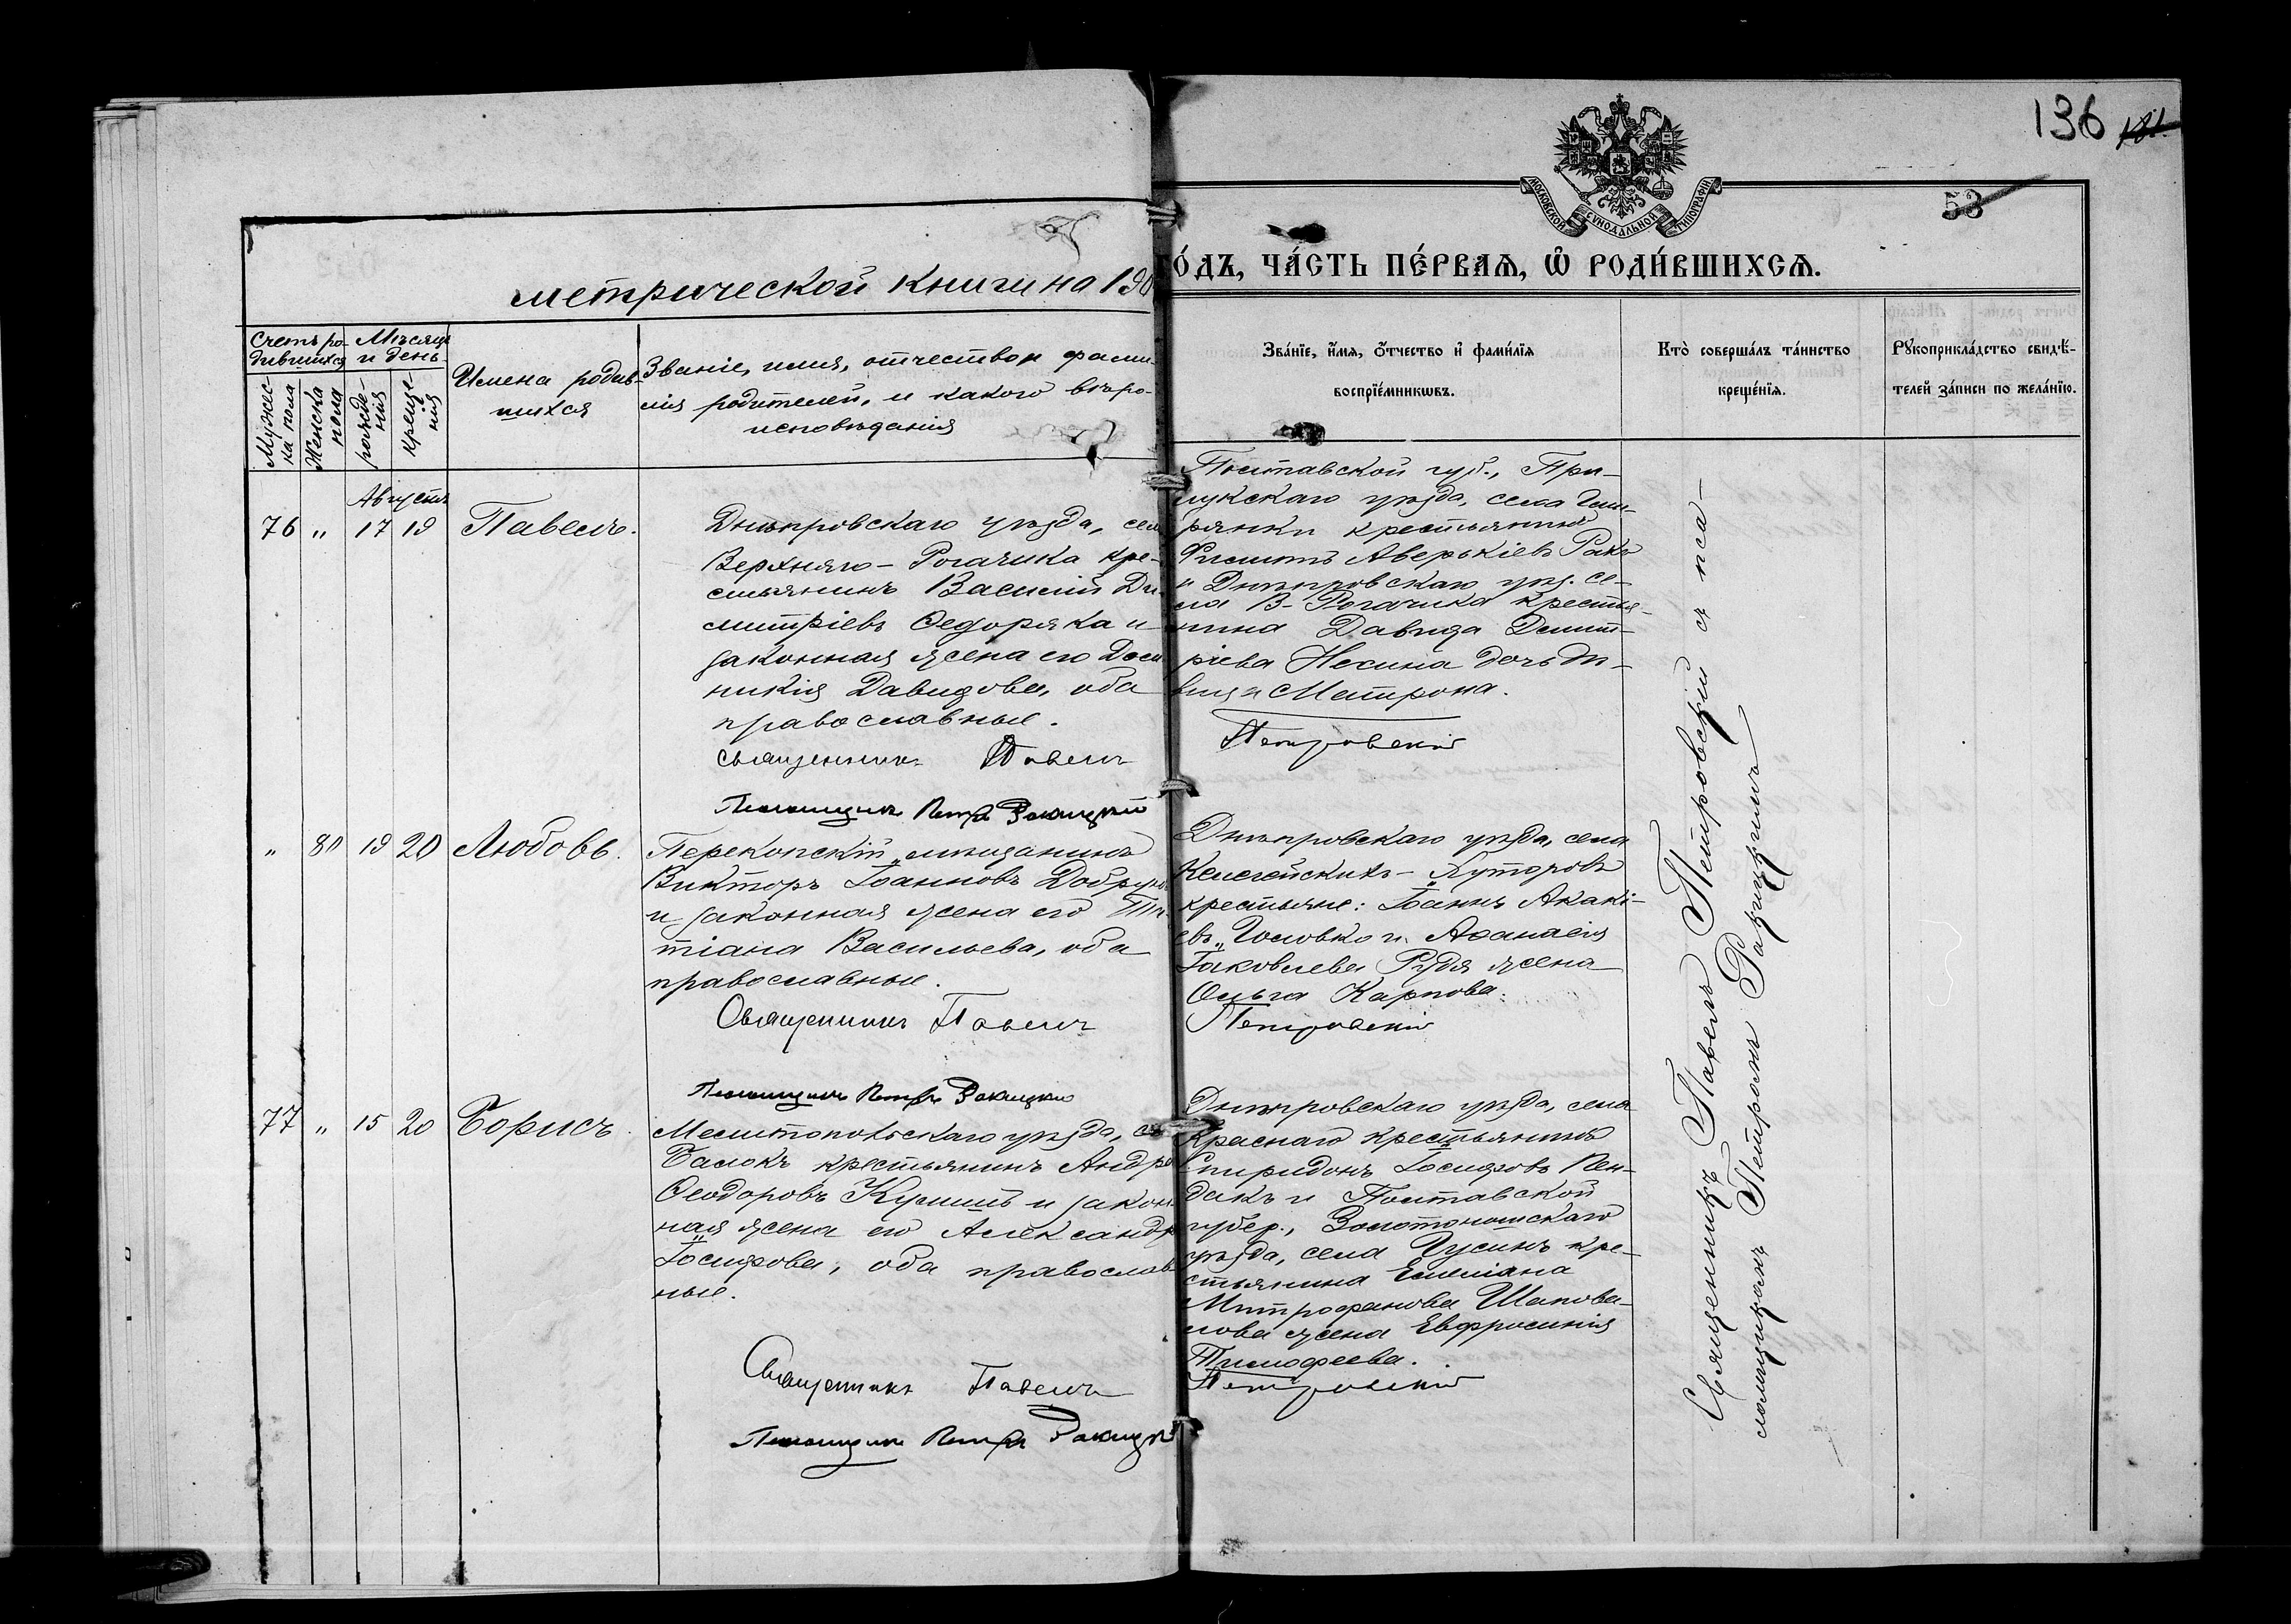 136
53
МОСКОВСКОЙ СѴНОДАЛЬНОЙ ТИПОГРАФІИ.
метрической книги на 190
го́дъ, ча́сть пе́рваѧ, ѡ҆ роди́вшихсѧ.
Счетъ ро-
дившихся
Мѣсяцъ
и день
Мужес-
ка пола
Женска
пола
рожде-
нія
креще-
нія
Имена родив-
шихся
Званіе, имя, отчество и фами-
лія родителей, и какого вѣро-
исповѣданія
Зва́нїе, и҆́мѧ, ѻ҆́тчество и҆ фами́лїѧ
воспрїе́мникѡвъ.
Кто̀ соверша́лъ та́инство
креще́нїѧ.
Рꙋкоприкла́дство свидѣ́-
телей за́писи по жела́нїю.
Августъ
76 „ 17 19 Павелъ.
Днѣпровскаго уѣзда, села
Верхняго-Рогачика кре-
стьянинъ Василій Ди-
митріевъ Федоряка и
законная жена его
Давидова, оба
православные.
Священникъ Павелъ
Псаломщикъ Петръ Ракицкій
Полтавской губ., При-
лукскаго уѣзда, села
крестьянинъ
Филиппъ Аверькіевъ
и Днѣпровскаго уѣз. се-
ла В-Рогачика крестья-
нина Давида Димит-
ріева Несина дочь дѣ-
вица Матрона.
Петровскій
„ 80 19 20 Любовь.
Перекопскій мѣщанинъ
Викторъ Іоанновъ
и законная жена его Та-
тіана Васильева, оба
православные.
Священникъ Павелъ
Псаломщикъ Петръ Ракицкій
Днѣпровскаго уѣзда, села
Келегейскихъ-Хуторовъ
крестьяне: Іоаннъ Акакі-
евъ Головко и Аѳанасія
Іаковлева Рудя жена
Ольга Карпова.
Петровскій
77 „ 15 20 Борисъ.
Мелитопольскаго уѣзда, с.
Балокъ крестьянинъ Андрей
Ѳеодоровъ и закон-
ная жена его Александра
Іосифова, оба православ-
ные.
Священникъ Павелъ
Псаломщикъ Петръ Ракицкій
Днѣпровскаго уѣзда, села
Краснаго крестьянинъ
Спиридонъ Іосифовъ Пен-
дакъ и Полтавской
губер., Золотоношскаго
уѣзда, села Гусинъ кре-
стьянина Емеліана
Митрофанова Шапова-
лова жена Евфросинія
Тимофеева.
Петровскій
Священникъ Павелъ Петровскій съ пса-
ломщикомъ Петромъ Ракицкимъ